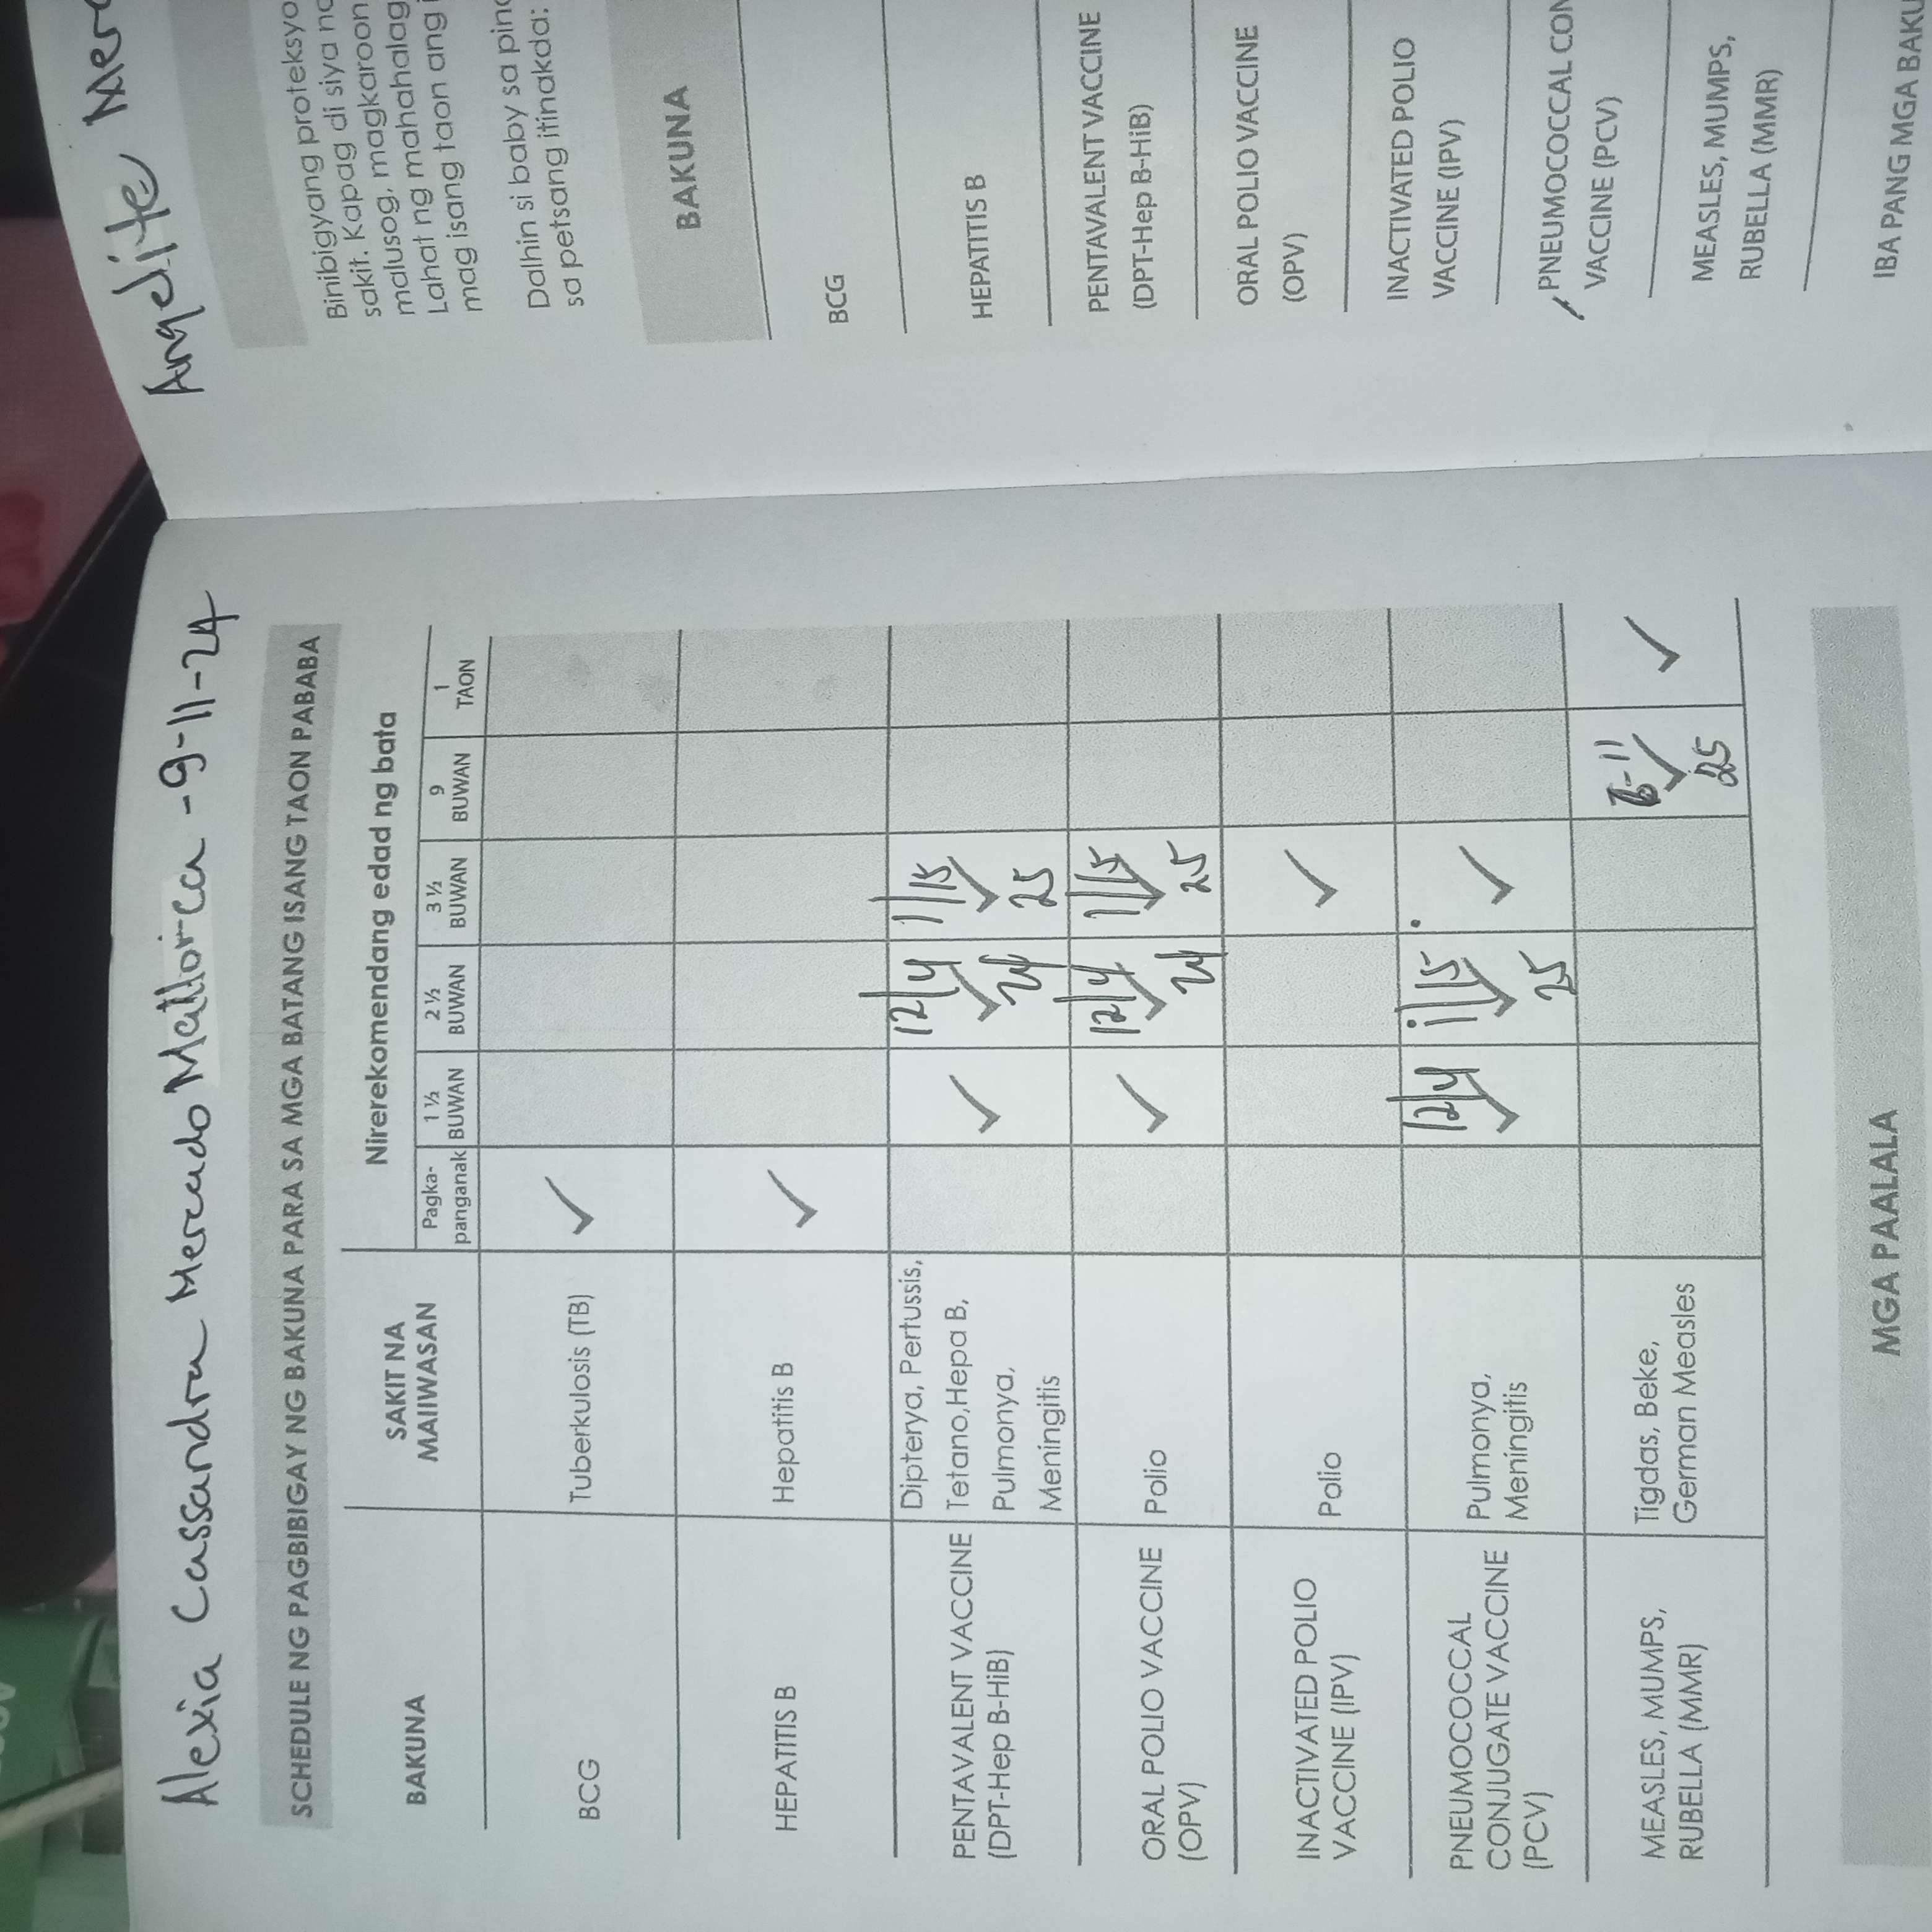 Alexia Cassandra Mercado Mallorca - 9-11-24
SCHEDULE NG PAGBIBIGAY NG BAKUNA PARA SA MGA BATANG ISANG TAON PABABA
BAKUNA
SAKIT NA MAIIWASAN
Nirerekomendang edad ng bata
Pagka-panganak
1 ½ BUWAN
2 ½ BUWAN
3 ½ BUWAN
9 BUWAN
1 TAON
BCG
Tuberkulosis (TB)
✓
HEPATITIS B
Hepatitis B
✓
PENTAVALENT VACCINE
(DPT-Hep B-HiB)
Dipterya, Pertussis,
Tetano,Hepa B,
Pulmonya,
Meningitis
✓
12/4 ✓ 24
1/15 ✓ 25
ORAL POLIO VACCINE
(OPV)
Polio
✓
12/4 ✓ 24
1/15 ✓ 25
INACTIVATED POLIO
VACCINE (IPV)
Polio
✓
PNEUMOCOCCAL
CONJUGATE VACCINE
(PCV)
Pulmonya,
Meningitis
12/4 ✓
1/15 ✓ 25
✓
MEASLES, MUMPS,
RUBELLA (MMR)
Tigdas, Beke,
German Measles
✓ 25
✓
MGA PAALALA
Angelite
Binibigyang
sakit. Kapag di siya
malusog, magkaroon
Lahat ng
mag isang taon ang
Dalhin si baby sa
sa petsang itinakda:
BAKUNA
BCG
HEPATITIS B
PENTAVALENT VACCINE
(DPT-Hep B-HiB)
ORAL POLIO VACCINE
(OPV)
INACTIVATED POLIO
VACCINE (IPV)
PNEUMOCOCCAL
VACCINE (PCV)
MEASLES, MUMPS,
RUBELLA (MMR)
IBA PANG MGA